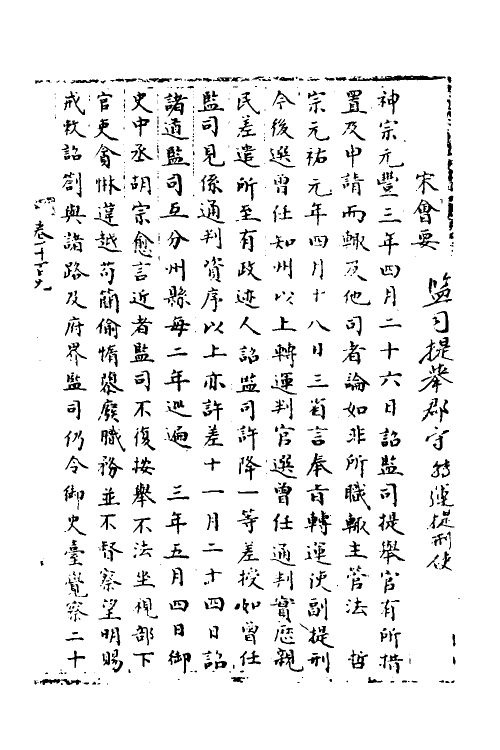 宋會要 監司提舉郡守 轉運提刑使
神宗元豐三年四月二十六日詔監司提舉官有所措
置及申請而輙及他司者論如非所職輙主管法 哲
宗元祐元年四月十八日三省言奉旨轉運使副提刑
今後選曾任知州以上轉運判官選曾任通判實歷親
民差遣所至有政迹人詔監司許降一等差授如曾任
監司見係通判資序以上亦許差十一月二十四日詔
諸道監司互分州縣每二年巡遍 三年五月四日御
史中丞胡宗愈言近者監司不復按舉不法坐視部下
官吏貪惏違越苟簡偷惰隳廢職務並不督察望明賜
戒敕詔劄與諸路及府界監司仍令御史臺覺察二十